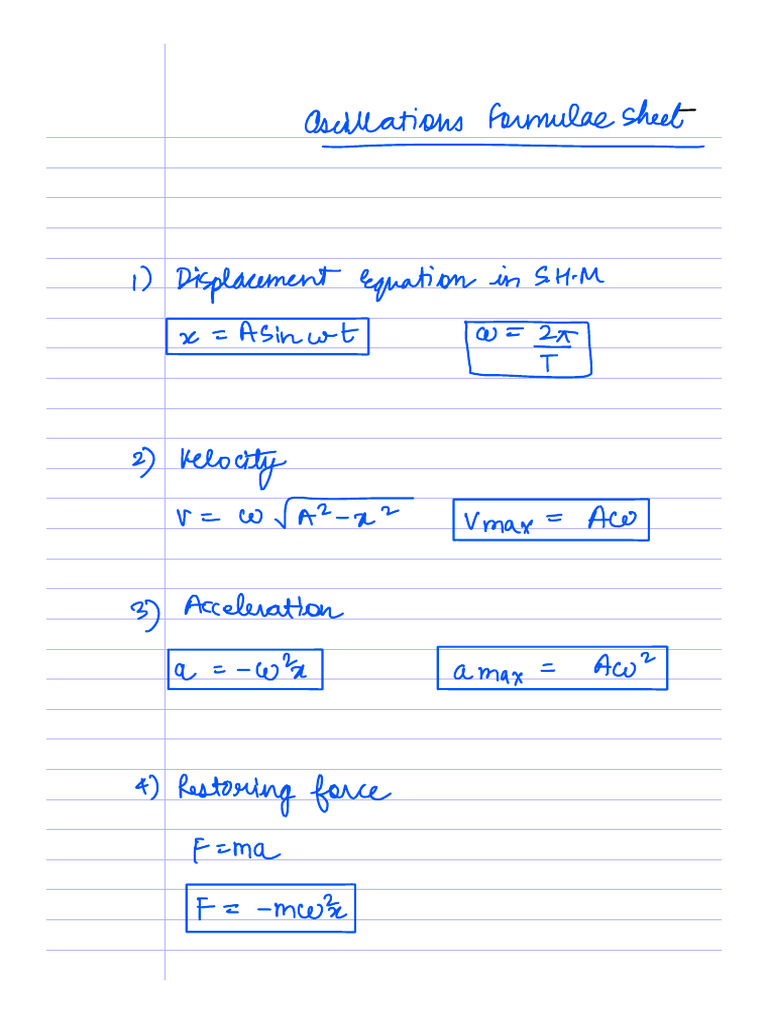 Oscillations Formulae Sheet
1) Displacement Equation in S.H.M
x = A Sin ωt    ω = 2π/T
2) Velocity
v = ω √(A² – x²)    Vmax = Aω
3) Acceleration
a = –ω²x    a max = Aω²
4) Restoring force
F = ma
F = –mω²x